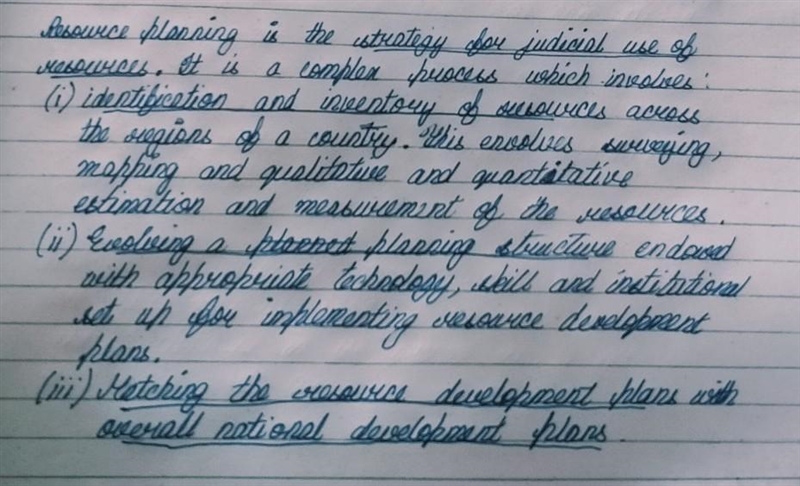 Resource planning is the strategy for judicial use of
resources. It is a complex process which involves:
(i) identification and inventory of resources across
the regions of a country. This envolves surveying,
mapping and qualitative and quantitative
estimation and measurement of the resources.
(ii) Evolving a planned planning structure endowed
with appropriate technology, skill and institutional
set up for implementing resource development
plans.
(iii) Matching the resource development plans with
overall national development plans.